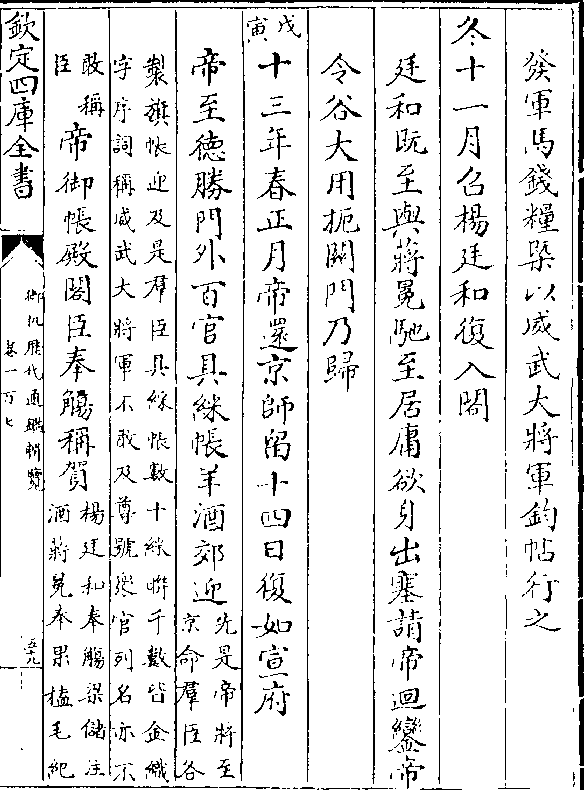 發軍馬錢糧槩以威武大將軍鈞帖行之
冬十一月召楊廷和復入閣
廷和既至與蔣冕馳至居庸欲身出塞請帝迴鑾帝
令谷大用扼關門乃歸
戊寅
十三年春正月帝還京師留十四日復如宣府
帝至德勝門外百官具綵帳羊酒郊迎
先是帝將至
京命羣臣各
製旗帳迎及是羣臣具綵帳數十綵聯千數皆金織
字序詞稱威武大將軍不敢及尊號衆官列名亦不
敢稱
臣
帝御帳殿閣臣奉觴稱賀
楊廷和奉觴梁儲注
酒蔣冕奉果榼毛紀
欽定四庫全書
御批歷代通鑑輯覽
卷一百七
五十九